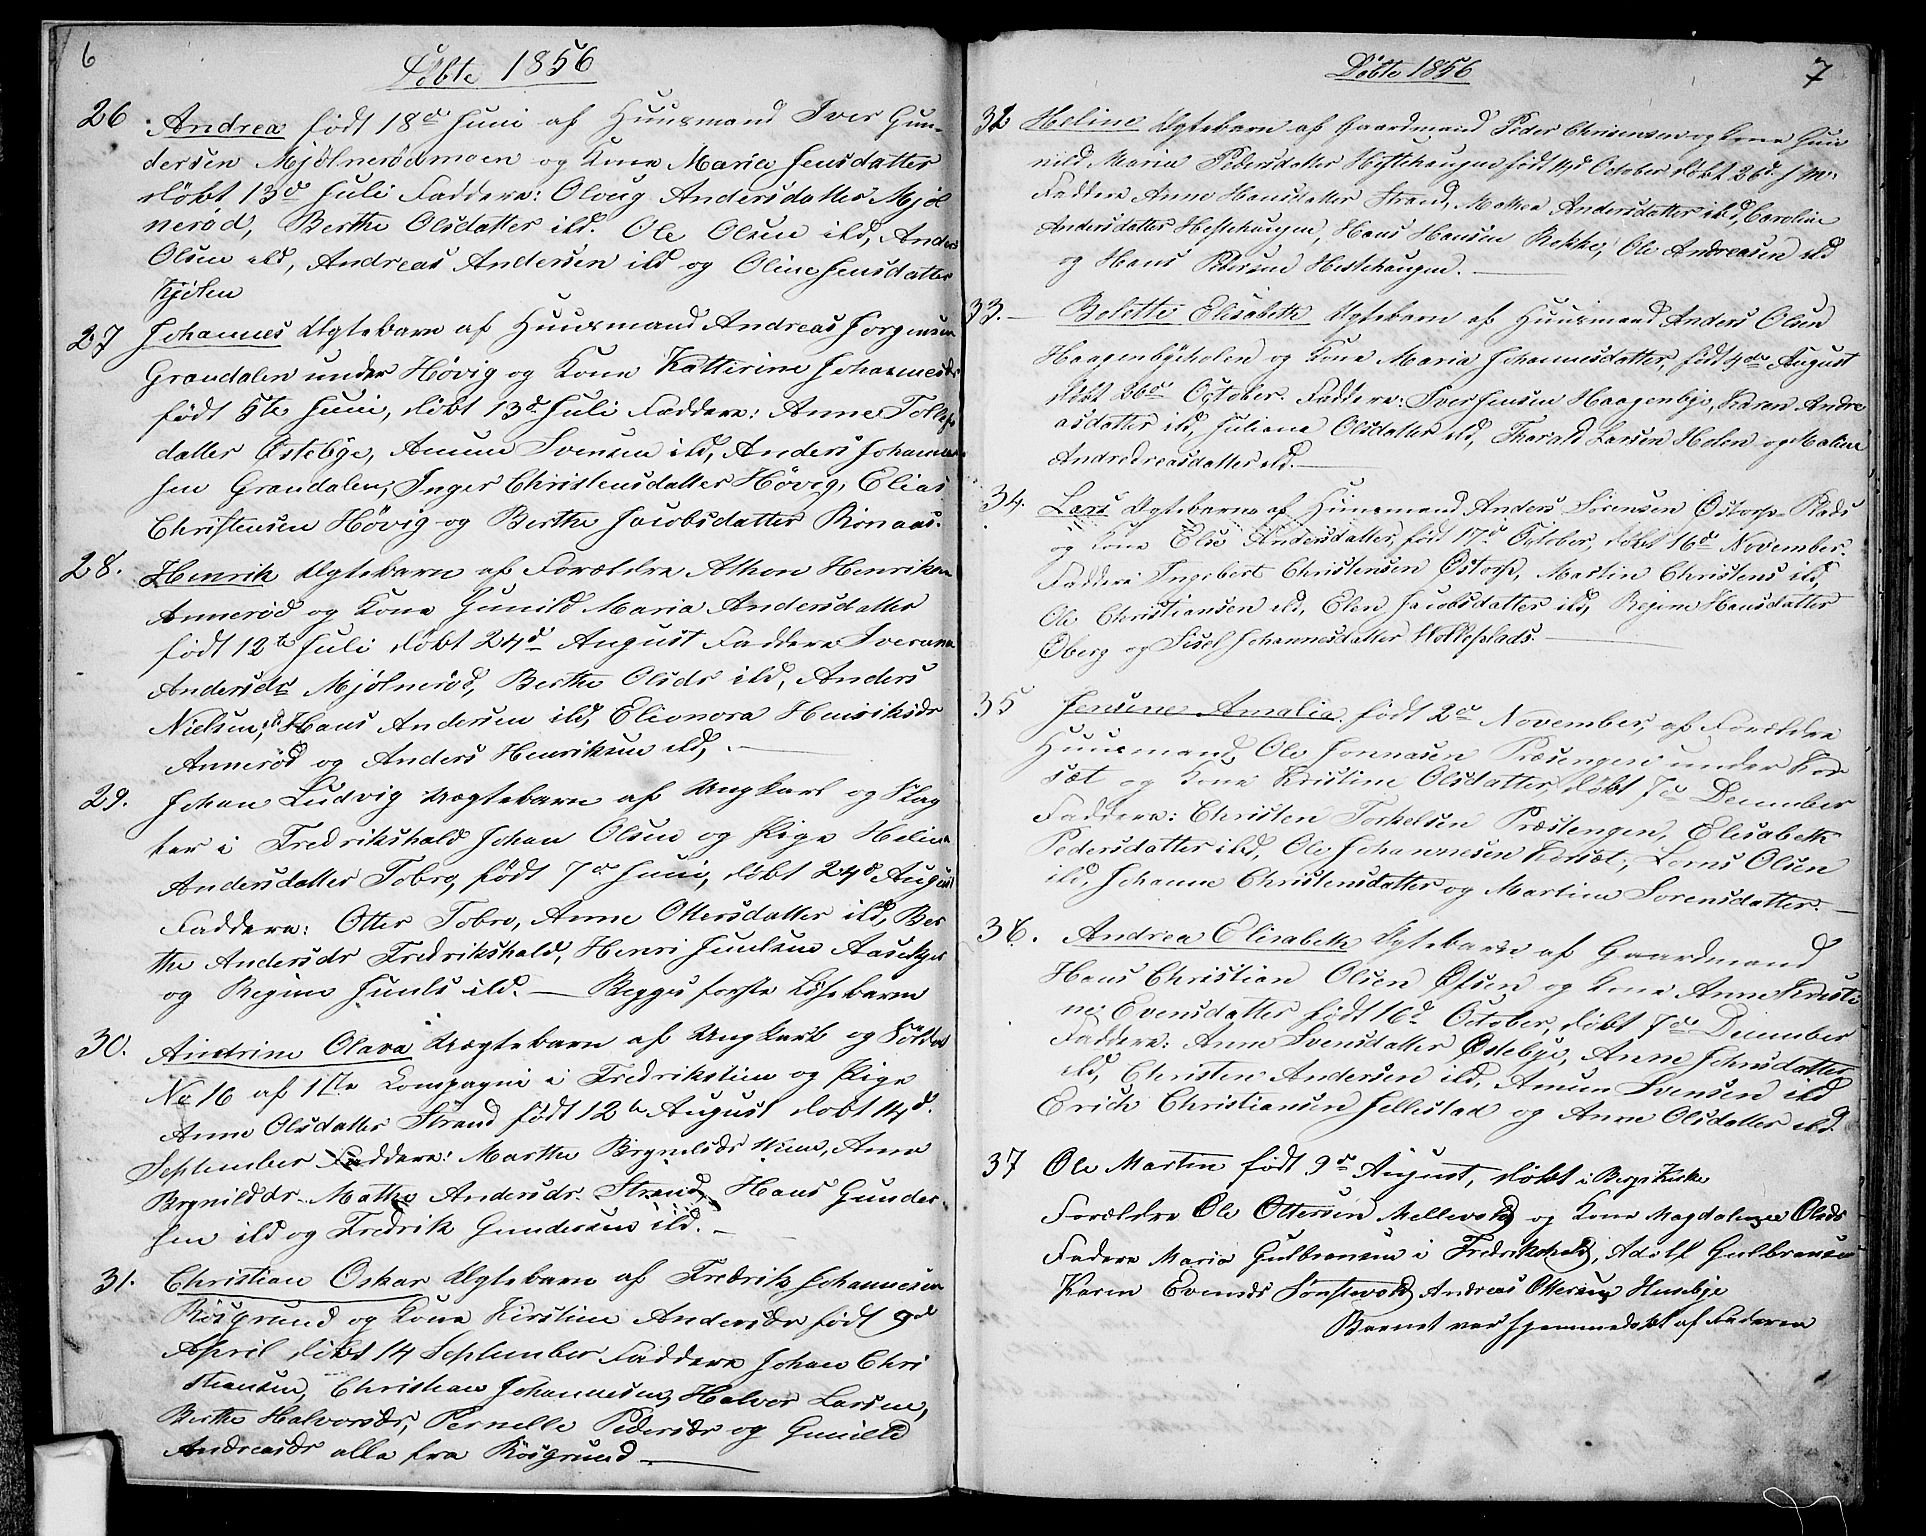 6
Døbte 1856
26 Andrea født 18de Juni af Huusmand Iver Gun-
dersen Mjølnerødmoen og Kone Maria Jensdatter
døbt 13de Juli Faddere: Oloug Andersdatter Mjøl
nerød, Berthe Olsdatter ibd. Ole Olsen ibd, Anders
Olsen ibd, Andreas Andersen ibd og Oline Jensdatter
Kjølen
27 Johannes Ægtebarn af Huusmand Andreas Jørgensen
Grandalen under Høvig og Kone Katterine Johannesdr
født 5te Juni, døbt 13d Juli Faddere: Anne Tollefs
datter Østebye, Amun Svensen ibd, Anders Johannes
sen Grandalen, Inger Christensdatter Høvig, Elias
Christensen Høvig og Berthe Jacobsdatter Rønaas.
28. Henrik Ægtebarn af Forældre Athon Henriksen
Annerød og Kone Gunild Maria Andersdatter
født 12te Juli døbt 24d August Faddere Iverana
Andersdr Mjølnerød, Berthe Olsdr ibd, Anders
Nielsen, Hans Andersen ibd, Elionora Henriksdr
Annerød og Anders Henriksen ibd,
29. Johan Ludvig Uægtebarn af Ungkarl og Slag
ter i Fredrikshald Johan Olsen og Pige Helene
Andersdatter Tobro, født 7de Juni, døbt 24d August
Faddere: Otter Tobro, Anne Ottersdatter ibd, Ber
the Andersdr Fredrikshald, Henri Juulsen
og Regine Juuls ibd. — Begges første Løsebarn
30. Andrine Olava Uægtebarn af Ungkarl og Soldat
No 16 af 1te Kompagni i Fredriksteen og Pige
Anne Olsdatter Strand født 12te August døbt 14d.
September Faddere: Marthe Brynildsdr Wiene, Anne
Brynilddr. Mathe Andersdr. Strand, Hans Gunder-
sen ibd og Fredrik Gundersen ibd.
31. Christian Oskar Ægtebarn af Fredrik Johannesen
Røsgrund og Kone Kirstine Andersdr født 9d
April døbt 14 September Faddere Johan Chri
stiansen, Christian Johannesen, Halvor Larsen,
Berthe Halvorsdr, Pernelle Pedersdr og Gunild
Andreasdr alle fra Røsgrund
Døbte 1856
7
32 Heline Ægtebarn af Gaardmand Peder Christensen og Kone Gun
nild Maria Pedersdatter Hestehaugen født 4d October døbt 26d s. M.
Faddere Anne Hansdatter Strand, Mathea Andersdatter ibd, Caroline
Andersdatter Hestehaugen, Hans Hansen Bekke, Ole Andreasen ibd
og Hans Pedersen Hestehaugen.
33. Bolette Elisabeth Ægtebarn af Huusmand Anders Olsen
Haagenbyeholen og Kone Maria Johannesdatter, født 4de August
døbt 26de October. Faddere: Iver Jensen Haagenbye, Karen Andre
asdatter ibd, Juliana Olsdatter ibd, Tharald Larsen Holen og Maline
Andredreasdatter ibd.
34. Lars Ægtebarn af Huusmand Anders Sørensen Østorp Plads
og Kone Else Andersdatter, født 17d October, døbt 16de November.
Faddere Ingebert Christensen Østorp, Martin Christens ibd,
Ole Christiansen ibd, Elen Jacobsdatter ibd, Regine Hansdatter
Øberg og Sisel Johannesdatter Holleplads.
35 Jensine Amalia født 2de November, af Forældre
Huusmand Ole Jonnasen Præsengen under Kor
sæt og Kone Kristine Olsdatter, døbt 7de December
Faddere: Christen Torkelsen Præstengen, Elisabeth
Pedersdatter ibd, Ole Johannesen Korsæt, Lorns Olsen
ibd, Johanne Christensdatter og Martine Sorensdatter.
36. Andrea Elisabeth Ægtebarn af Gaardmand
Hans Christian Olsen Øfsen og Kone Anne Kristi
ne Evensdatter født 16de October, døbt 7de December
Faddere: Anne Svensdatter Østebye, Anne Jensdatter
ibd, Christen Andersen ibd, Amun Svensen ibd
Erich Christiansen Jellestad og Anne Olsdatter ibd.
37 Ole Martin født 9de August, døbt i Bergs Kirke
Forældre Ole Ottersen Mellevold og Kone Magdalene Olsdr
Fadere Maria Gulbransen i Fredrikshald, Adolf Gulbransen
Karen Evensds Sønstevold Andreas Ottersen Husebye
Barnet var hjemmedøbt af Faderen